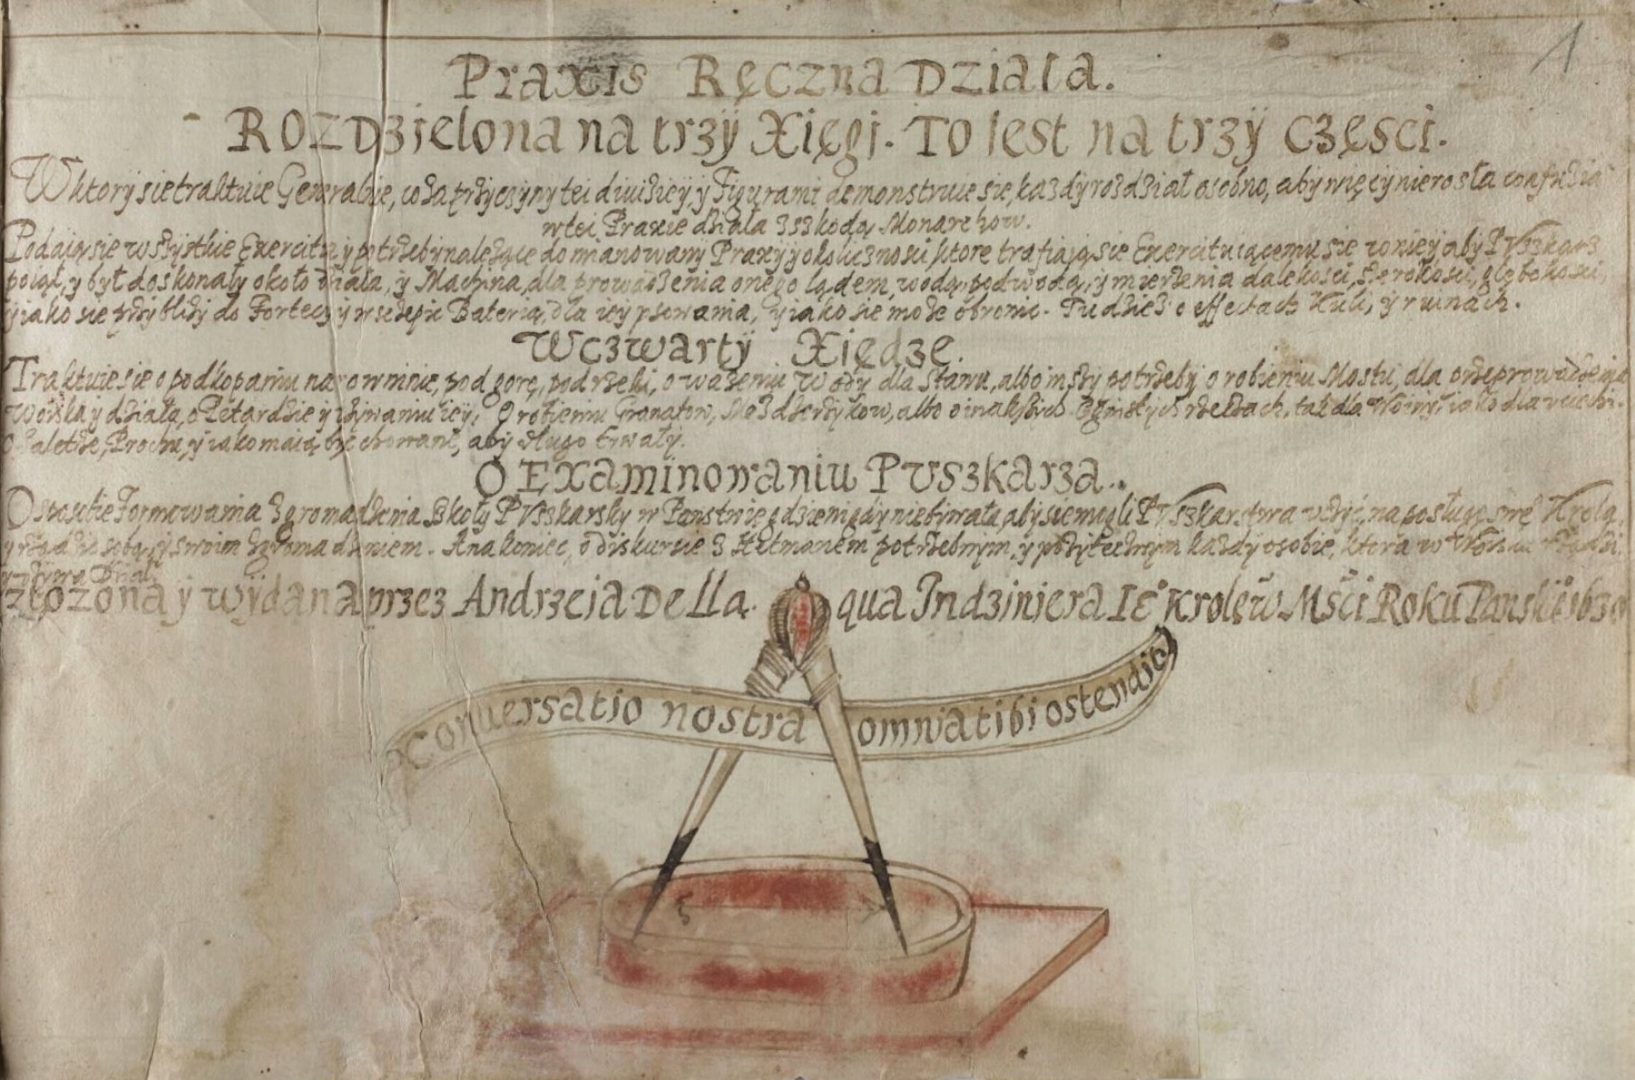 1
Praxis Ręczna Działa.
ROZDzielona na trzÿ Xięgi. TO iest na trzÿ części.
W ktorÿ sie traktuie Generalnie, co za przÿczÿny tei diuiziey, y Figurami demonstruie sie, kazdÿ rozdział osobno, aby więcÿ nie rosła confuzia
w tei Praxie działa z szkodą Monarchow.
Podaią sie wszÿstkie Exercitia y potrzebÿ nalezące do mianowanÿ Praxÿ y okolicznosci ktore trafiaią sie Exercituiącemu sie w nieÿ aby PVszkarz
poiął, y był doskonałÿ około Działa, ÿ Machina, dla prowadzenia onego lądem, wodą, pod wodą, ÿ mierzenia dalekosci, szerokosci, głębokosci,
ÿ iako sie przÿblizÿ do Fortecÿ ÿ Baterią, dla ieÿ psowania, ÿ iako sie moze obronic. Tudziez o effectach Kuli, ÿ ruinach.
W czwartÿ Xiędze.
Traktuie sie o podkopaniu na rowninie, pod gorę, pod rzeki, o wazeniu Wodÿ dla Stawu, albo inszÿ potrzebÿ o robieniu Mostu, dla przeprowadzenia
woiska y działa, o Petardzie y ieÿ, O robieniu Granatow, Mozdzerzÿkow, albo o inakszÿch Ognistÿch rzeczach, tak dla Woinÿ, iako dla uciechi.
O Saletrze, Prochu, ÿ iako maią bÿc chowane, abÿ długo trwałÿ.
O EXaminowaniu PVszkarza.
O sposobie Formowania Zgromadzenia Szkołÿ PVszkarskiy w Panstwie gdzie nigdÿ nie bÿwała abÿ sie mogli PVszkarstwa uczÿc, na posługę swe Krola,
y rządzic sobą, ÿ swoim zgromadzeniem. A na koniec, o diskursie z Hetmanem potrzebnÿm, ÿ pozÿtecznÿm kazdÿ osobie, ktora w Woisku rządzi,
y uzÿwa Dział.
złozona ÿ wÿdana przez Andrzeia Della qua Indziniera Ie° Krolew Msci Roku Panskie°
Conuersatio nostra omnia tibi ostendit